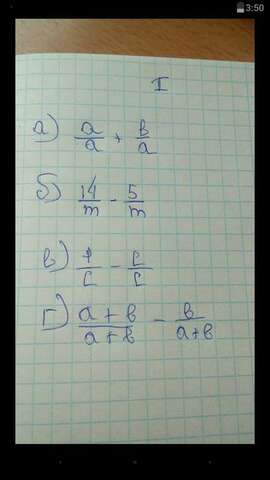 3:50
I
а) a/a + b/a
б) 14/m - 5/m
в) 1/c - c/c
г) a+b/a+b - b/a+b